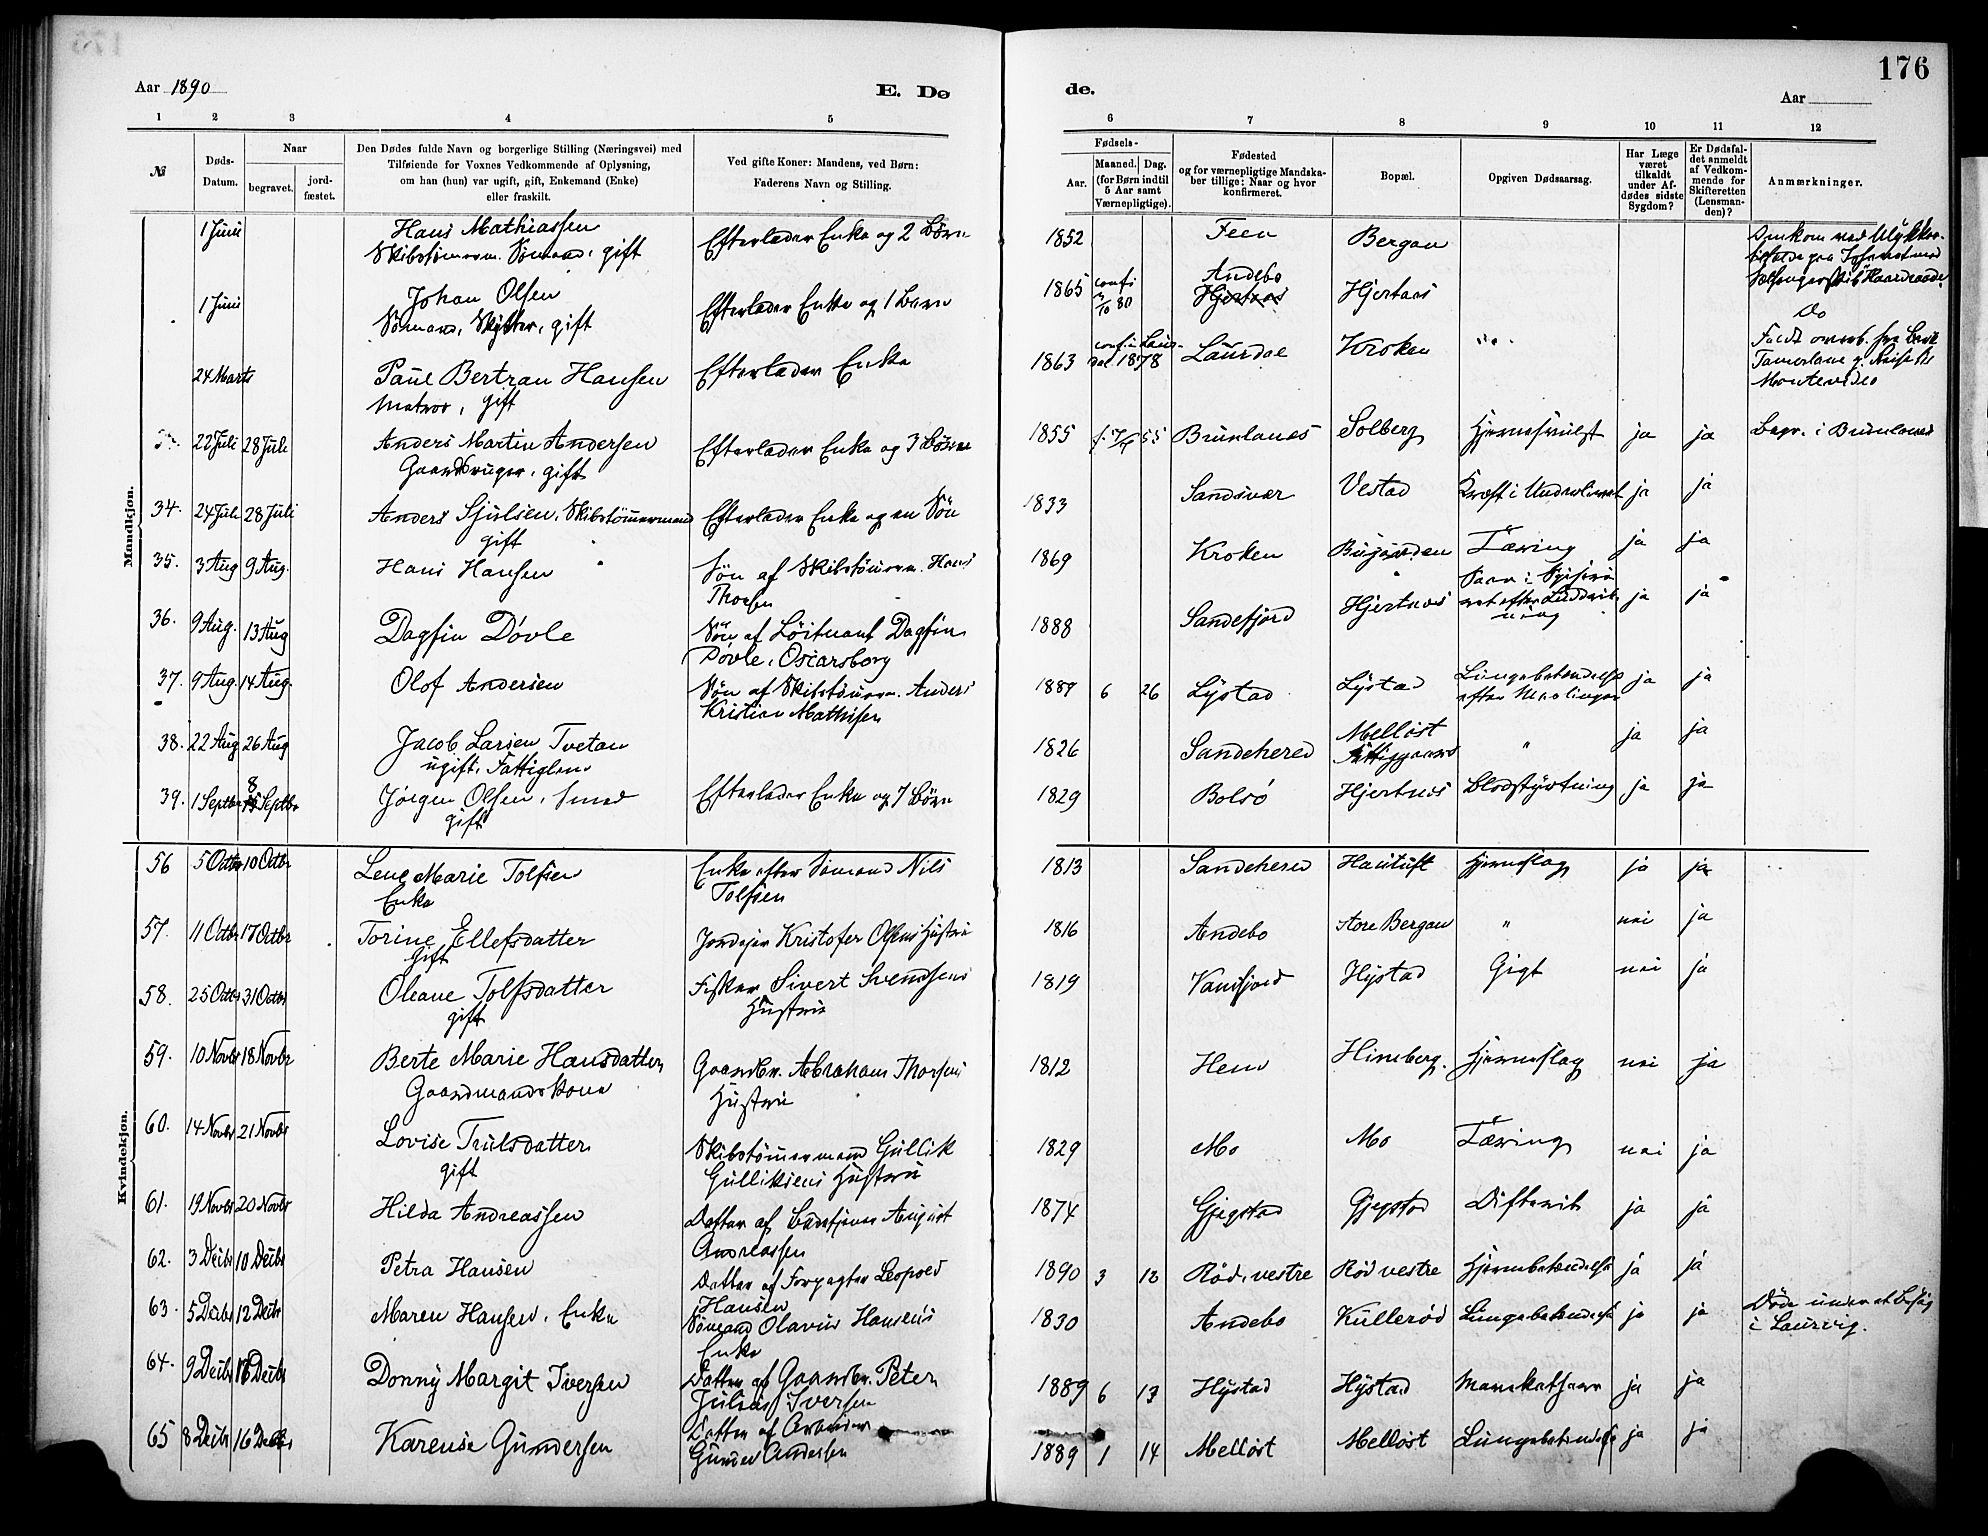 176
Aar 1890
E. Dø
de.
Aar
1 2 3 4 5 6 7 8 9 10 11 12
№
Døds-
Datum.
Naar
begravet.
jord-
fæstet.
Den Dødes fulde Navn og borgerlige Stilling (Næringsvei) med
Tilføiende for Voxnes Vedkommende af Oplysning,
om han (hun) var ugift, gift, Enkemand (Enke)
eller fraskilt.
Ved gifte Koner: Mandens, ved Børn:
Faderens Navn og Stilling.
Fødsels-
Aar.
Maaned. Dag.
(for Børn indtil
5 Aar samt
Værnepligtige).
Fødested
og for værnepligtige Mandska-
ber tillige: Naar og hvor
konfirmeret.
Bopæl.
Opgiven Dødsaarsag.
Har Læge
været
tilkaldt
under Af-
dødes sidste
Sygdom?
Er Dødsfal-
det anmeldt
af Vedkom-
mende for
Skifteretten
(Lensman-
den)?
Anmærkninger.
Mandkjøn.
1 Juni Hans Mathiassen Efterlader Enke og 2 Børn 1852 Feen Bergan Omkom ved Ulykkes-
Skibstømrerm. Sømand, gift
1 Juni Johan Olsen Efterlader Enke og 1 Barn 1865 conf. 80 Andebo Hjertnæs Do
Sømand, Skytter, gift Hjertnes
24 Marts Paul Bertran Hansen Efterlader Enke 1863 1878 Laurdal Kroken " Faldt overb. fra Bark
Matros, gift Tamerlane p. Reise til
Montevideo
22 Juli 28 Juli Anders Martin Andersen Efterlader Enke og 3 Børn 1855 55 Brunlanes Solberg Hjernesvulst ja ja Begr. i Brunlanes
Gaardbruger, gift
34. 24 Juli 28 Juli Anders Sjulsen, Skibstømmermand Efterlader Enke og en Søn 1833 Sandsvær Vestad Kræft i Underlivet ja ja
gift
35. 3 Aug 9 Aug. Hans Hansen Søn af Skibstømrerm. Hans 1869 Kroken Bugården Tæring ja ja
Thorsen
36. 9 Aug. 13 Aug Dagfin Døvle Søn af Løitnant Dagfin 1888 Sandefjord Hjertnes ja ja
Døvle, Oscarsborg
37. 9 Aug. 14 Aug. Olof Andersen Søn af Skibstømrerm. Anders 1889 6 26 Lystad Lystad Lungebetendelse ja ja
Kristian Mathisen efter Meslinger
38. 22 Aug 26 Aug Jacob Larsen Tvetan 1826 Sandehered Melløst " ja ja
ugift, Fattiglem Fattiggaard
39. 1 Septbr 8 Septbr Jørgen Olsen, Smed Efterlader Enke og 7 Børn 1829 Bolsø Hjertnes Blodstyrtning ja ja
gift
Kvindekjøn.
56 5 Octbr 10 Octbr Lene Marie Tolfsen Enke efter Sømand Nils 1813 Sandehered Hauituft Hjerneslag ja ja
Enke Tolfsen
57. 11 Octbr 17 Octbr Torine Ellefsdatter Jordejer Kristofer Olsens Hustru 1816 Andebo Store Bergan " nei ja
gift
58. 25 Octbr 31 Octbr Oleane Tolfsdatter Fisker Sivert Svendsens 1819 Vansfjord Hystad Gigt nei ja
gift Hustru
59. 10 Novbr 18 Novbr Berte Marie Hansdatter Gaardbr. Abraham Thorsens 1812 Hem Himberg. Hjerneslag nei ja
Gaardmandskone Hustru
60. 14 Novbr 21 Novbr Lovise Trulsdatter Skibstømmermand Gullik 1829 Mo Mo Tæring nei ja
gift Gulliksens Hustru
61. 19 Novbr 20 Novbr Hilda Andreassen Datter af August 1874 Gjegstad Gjegstad Difterit ja ja
Andreassen
62. 3 Decbr 10 Decbr Petra Hansen Datter af Forpagter Leopold 1890 3 12 Rød, vestre Rød vestre Hjernebetendelse ja ja
Hansen
63. 5 Decbr 12 Decbr Maren Hansen, Enke Sømand Olavus Hansens 1830 Andebo Kullerød Lungebetendelse ja ja Døde under et Besøg
Enke i Laurvig.
64. 9 Decbr 17 Decbr Donny Margit Iversen Datter af Gaardbr. Peter 1889 6 13 Hystad Hystad ja ja
Julius Iversen
65 8 Decbr 16 Decbr Karense Gundersen Datter af Arbeider 1889 1 14 Melløst Melløst Lungebetendelse ja ja
Gunder Andersen